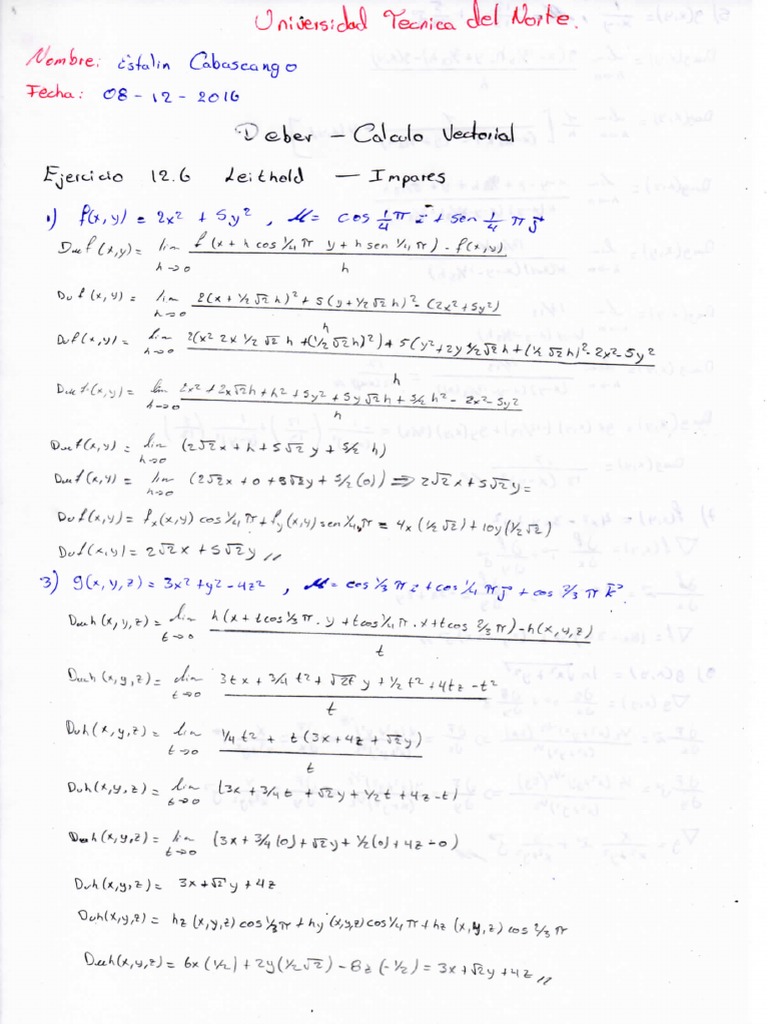 Universidad Tecnica del Norte.
Nombre: Estalin Cabascango
Fecha: 08-12-2016
Deber – Calculo Vectorial
Ejercicio 12.6 Leithold — Impares
1) f(x,y) = 2x² + 5y² , u = cos 1/4 π i + sen 1/4 π j
Duf(x,y) = lim h→0 (f(x + h cos 1/4 π y + h sen 1/4 π) - f(x,y)) / h
Duf(x,y) = lim h→0 (2(x + 1/2 √2 h)² + 5(y + 1/2 √2 h)² - (2x² + 5y²)) / h
Duf(x,y) = lim h→0 (2(x² 2x 1/2 √2 h + (1/2 √2 h)²) + 5(y² + 2y 1/2 √2 h + (1/2 √2 h)² - 2x² - 5y²) / h
Duf(x,y) = lim h→0 (2x² + 2x√2h + h² + 5y² + 5y√2h + 5/2 h² - 2x² - 5y²) / h
Duf(x,y) = lim h→0 (2√2x + h + 5√2y + 5/2 h)
Duf(x,y) = lim h→0 (2√2x + 0 + 5√2y + 5/2 (0)) ⇒ 2√2x + 5√2y =
Duf(x,y) = fx(x,y) cos 1/4 π + fy(x,y) sen 1/4 π = 4x (1/2 √2) + 10y (1/2 √2)
Duf(x,y) = 2√2x + 5√2y //
3) g(x,y,z) = 3x² + y² - 4z² , u = cos 1/3 π i + cos 1/4 π j + cos 2/3 π k
Duh(x,y,z) = lim t→0 (h(x + t cos 1/3 π . y + t cos 1/4 π . x + t cos 2/3 π) - h(x,y,z)) / t
Duh(x,y,z) = lim t→0 (3tx + 3/4 t² + √2t y + 1/2 t² + 4tz - t²) / t
Duh(x,y,z) = lim t→0 (1/4 t² + t(3x + 4z + √2y)) / t
Duh(x,y,z) = lim t→0 (3x + 3/4 t + √2y + 1/2 t + 4z - t)
Duh(x,y,z) = lim t→0 (3x + 3/4 (0) + √2y + 1/2 (0) + 4z - 0)
Duh(x,y,z) = 3x + √2 y + 4z
Duh(x,y,z) = hz(x,y,z) cos 1/3 π + hy(x,y,z) cos 1/4 π + hz(x,y,z) cos 2/3 π
Duh(x,y,z) = 6x (1/2) + 2y (1/2 √2) - 8z (-1/2) = 3x + √2y + 4z //